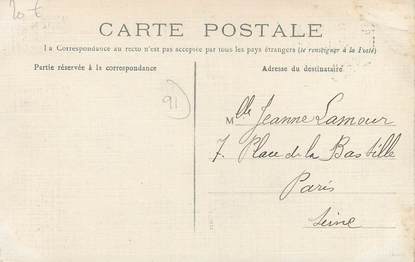 20 €
CARTE POSTALE
La Correspondance au recto n'est pas acceptée par tous les pays étrangers (se renseigner à la Poste)
Partie réservée à la correspondance
Adresse du destinataire
91
Mlle Jeanne Lamour
7. Place de la Bastille
Paris
Seine